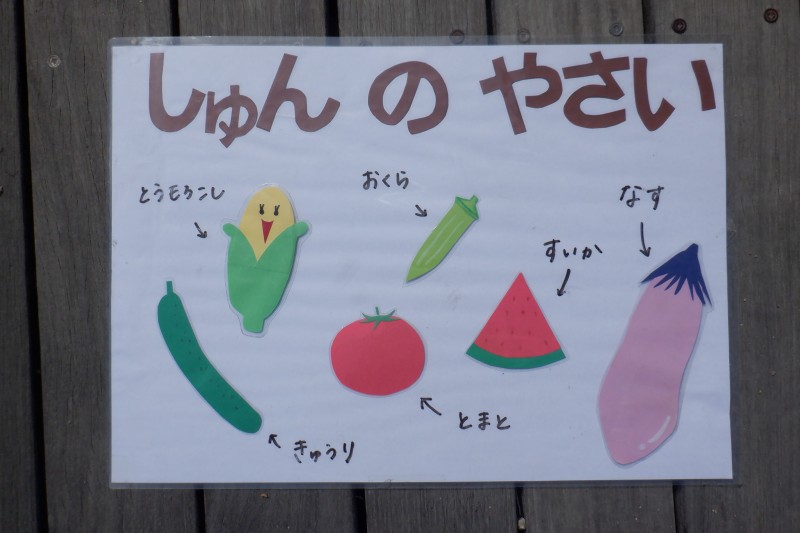 しゅん の やさい
とうもろこし
おくら
なす
すいか
とまと
きゅうり